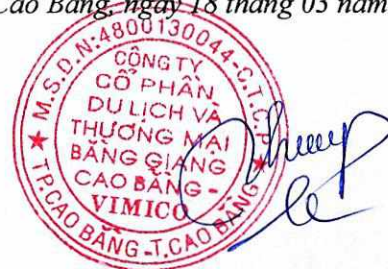 Cao Bằng, ngày 18 tháng 03 năm
M.S.D.N:4800130044-C.T.C.P
CÔNG TY
CỔ PHẦN
DU LỊCH VÀ
THƯƠNG MẠI
BẰNG GIANG
CAO BẰNG -
VIMICO
TP.CAO BẰNG-T.CAO BẰNG